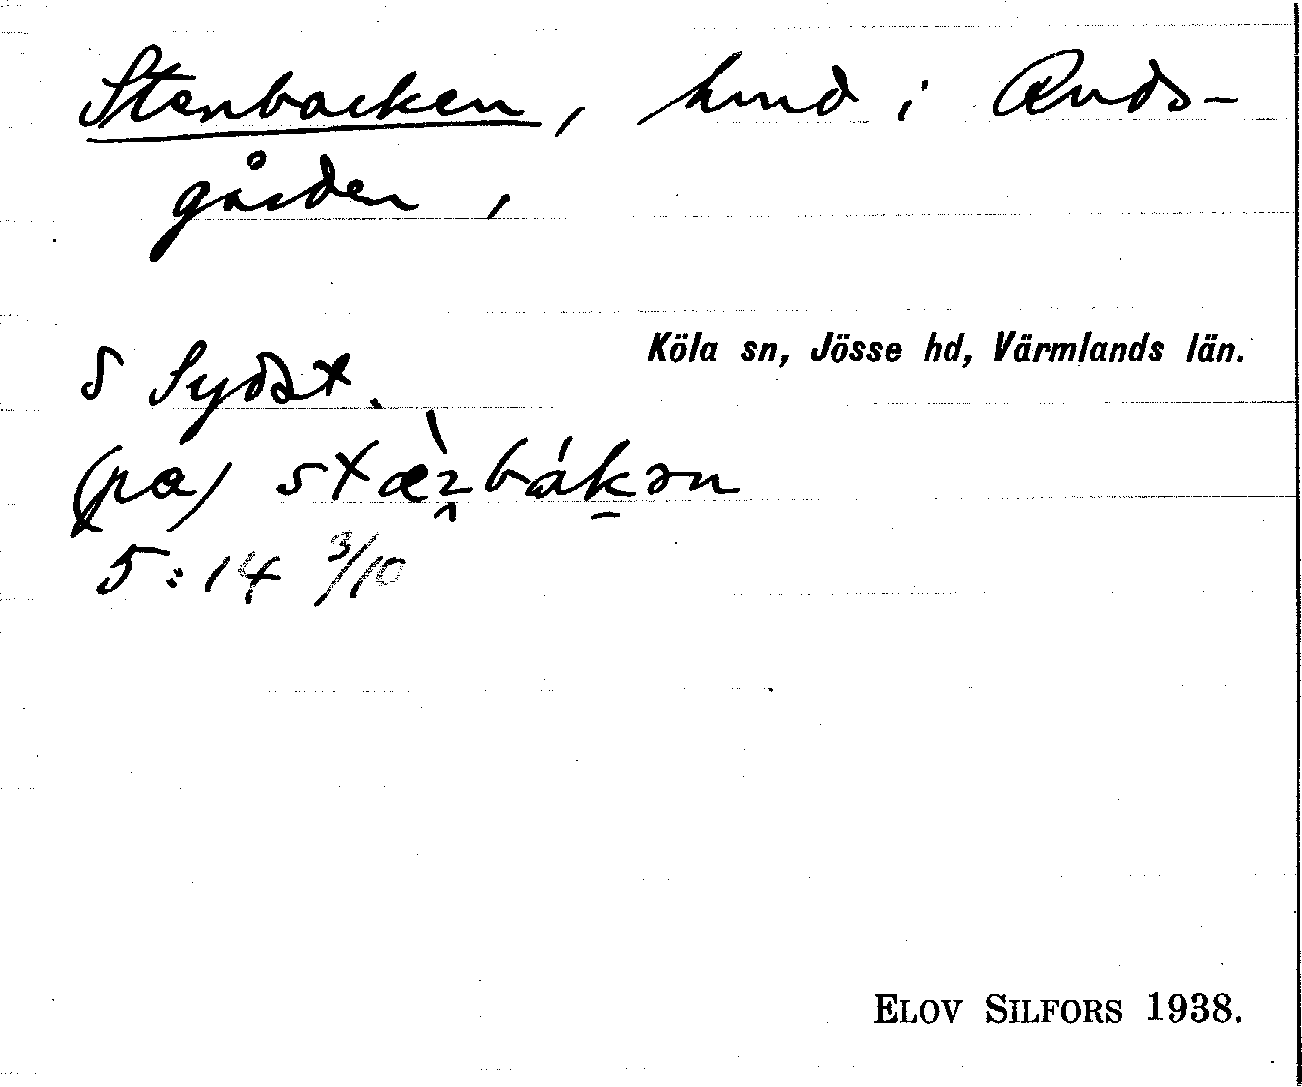 Stenbacken, hmd i Ruds-
gården,
Köla sn, Jösse hd, Värmlands län.
S Sydöst.
(pa)
5:14 3/10
ELOV SILFORS 1938.